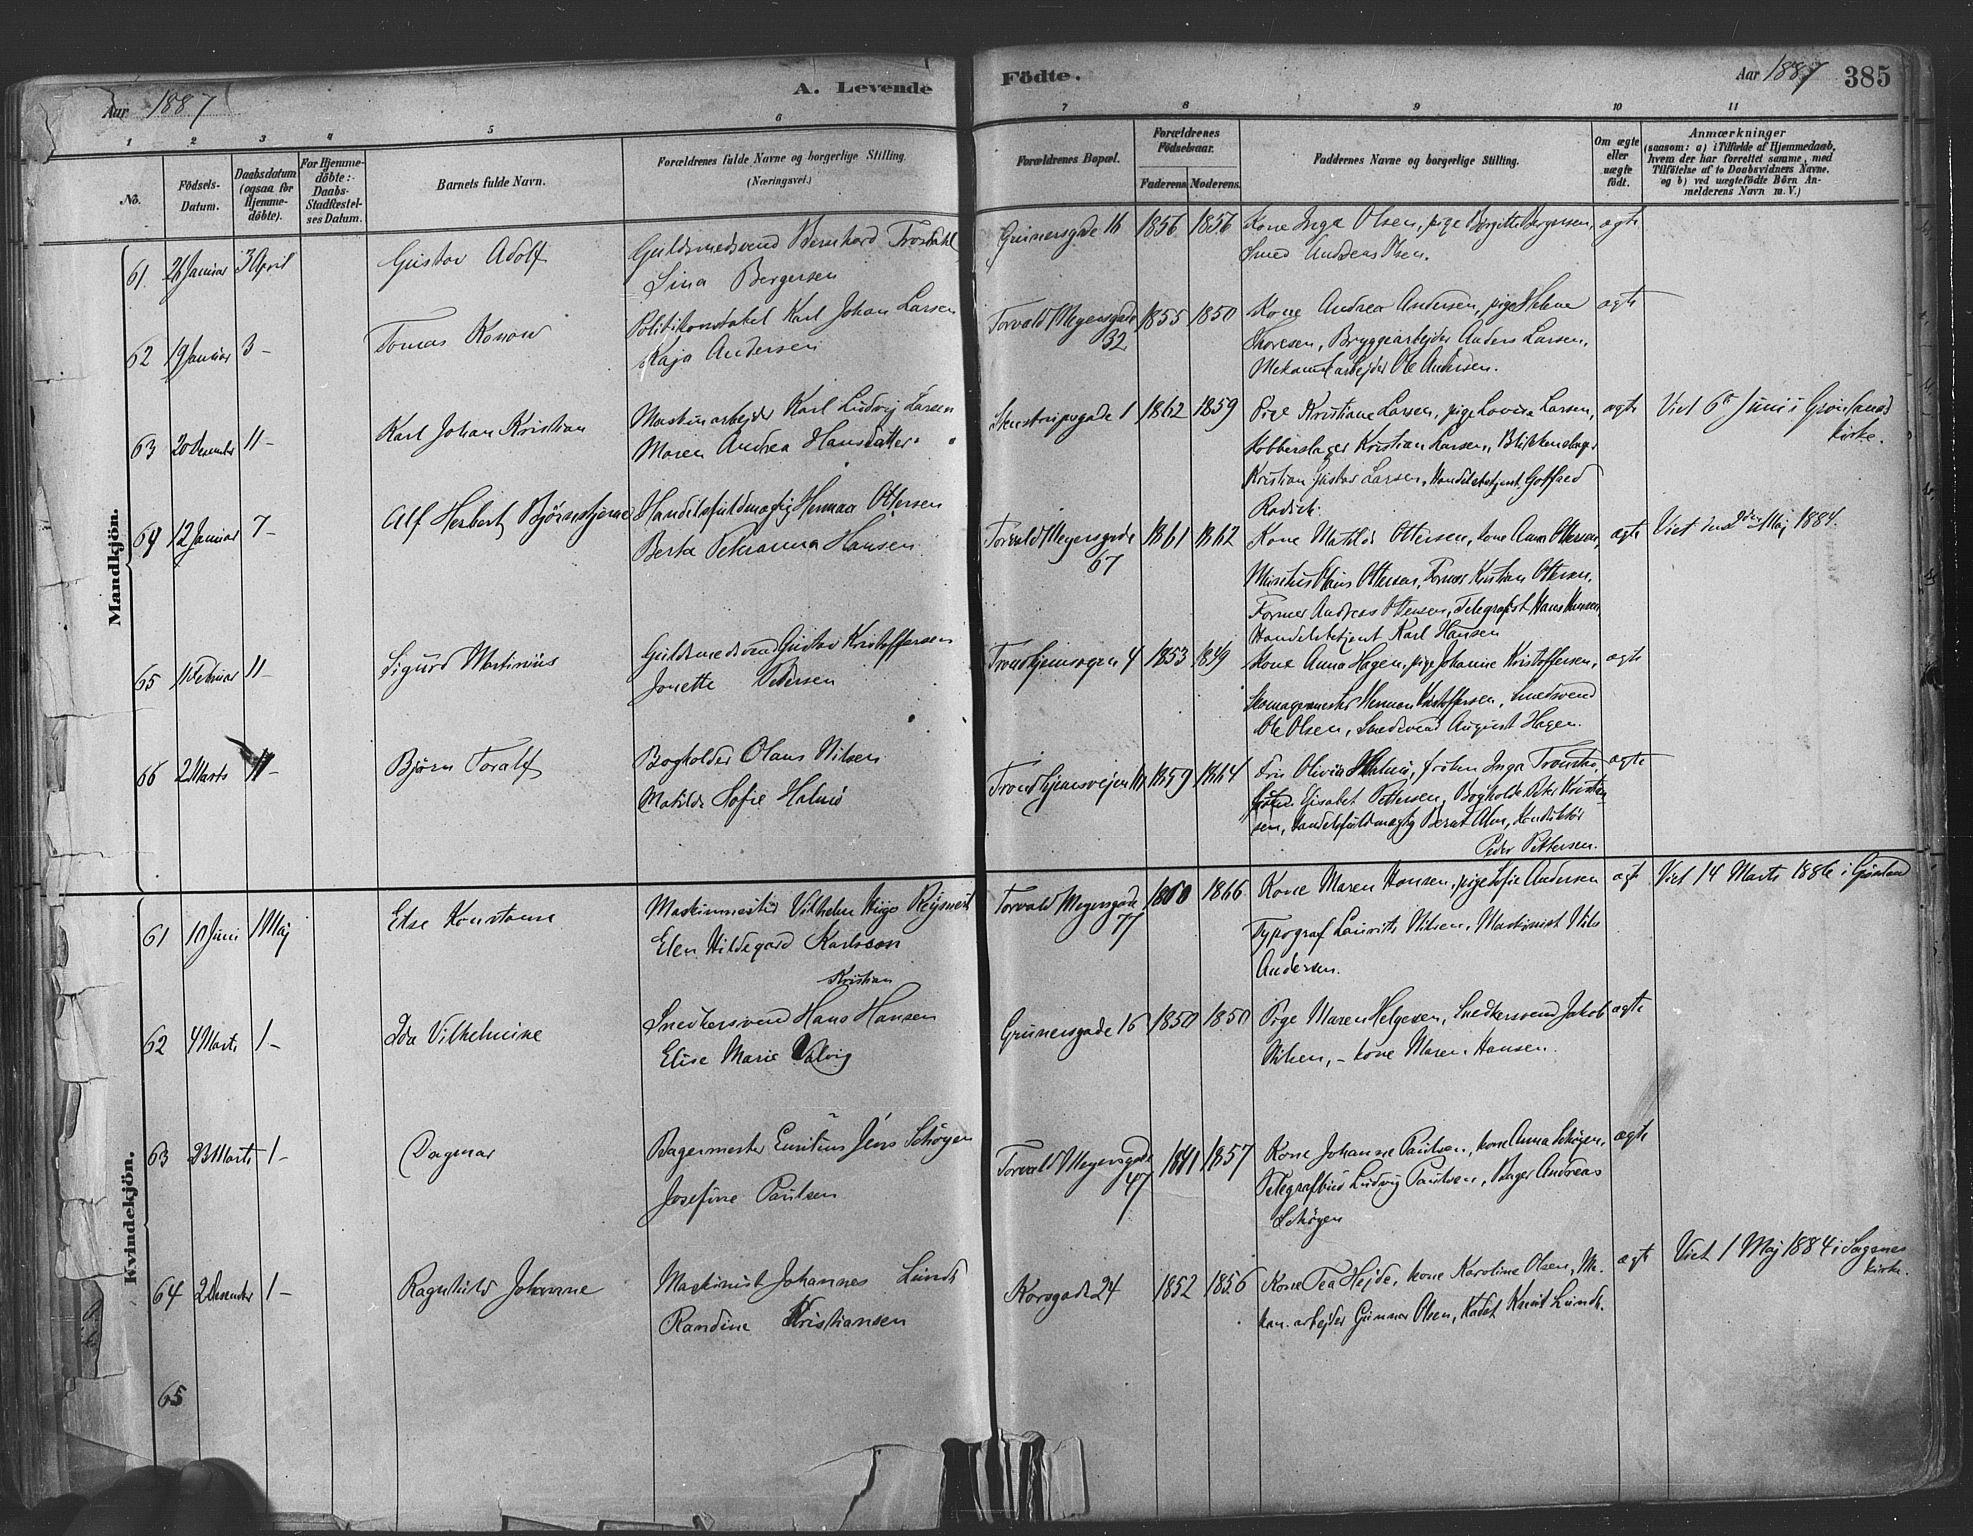 Aar 1887
A. Levende
Födte.
Aar 1887
385
1 2 3 4 5 6 7 8 9 10 11
No.
Födsels-Datum.
Daabsdatum (ogsaa for Hjemme-döbte).
For Hjemme-döbte: Daabs-Stadfæstel-ses Datum.
Barnets fulde Navn.
Forældrenes fulde Navne og borgerlige Stilling. (Næringsvei.)
Forældrenes Bopæl.
Forældrenes Födselsaar.
Faderens Moderens.
Faddernes Navne og borgerlige Stilling.
Om ægte eller uægte födt.
Anmærkninger
(saasom: a) i Tilfælde af Hjemmedaab, hvem der har forrettet samme, med Tilföielse af to Daabsvidners Navne, og b) ved uægtefödte Börn Anmelderens Navn m. V.)
Mandkjön.
61 26 Januar 3 April Gustav Adolf
Guldsmedsvend Bernhard Trosdahl
Lina Bergersen
Grünersgade 16 1856 1856
Kone Inga Olsen, pige Birgitte Bergersen,
Smed Andreas Olsen.
ægte
62 19 Januar 3 – Tomas Konow
Politikonstabel Karl Johan Larsen
Kaja Andersen
Torvald Meyersgade 32 1855 1850
Kone Andrea Andersen, pige Helene
Thoresen, Bryggearbejder Anders Larsen,
Mekan. arbejder Ole Andersen.
ægte
63 20 Desember 11 – Karl Johan Kristian
Maskinarbejder Karl Ludvig Larsen
Maren Andrea Hansdatter
Stenstrupsgade 1 1862 1859
Pige Kristiane Larsen, pige Lovisa Larsen,
Kobberslager Kristian Larsen, Blikkenslager
Kristian Gustav Larsen, Handelsbetjent Gotfred
Radich.
ægte
Viet 6te Juni i Grønlands
kirke.
64 12 Januar 7 – Alf Herbert Bjørnstjerne
Handelsfuldmægtig Herman Ottersen
Berta Petrana Hansen
Torvald Meyersgade 67 1861 1862
Kone Matilde Ottersen, kone Anna Ottersen,
Ottersen, Former Kristian Ottersen,
Former Andreas Ottersen, Telegrafist Hans Hansen,
Handelsbetjent Karl Hansen
ægte
Viet den 2den Maj 1884.
65 11 Februar 11 – Sigurd Martinius
Guldsmedsvend Gustav Kristoffersen
Jonette Petersen
Trondhjemsvegen 4 1853 1849
Kone Anna Hagen, pige Johanne Kristoffersen,
Skomagermester Herman Kristoffersen, Smedsvend
Ole Olsen, Smedsvend August Hagen.
ægte
66 2 Marts 11 – Bjørn Toralf
Bogholder Olaus Nilsen
Matilde Sofie Holmö
Trondhjemsvejen 1859 1864
Fru Olivia Holmö, frøken Inga
Elisabet Pettersen, Bogholder Peter Kristen-
sen, Handelsfuldmægtig Bernt Alm, Konduktør
Peder Pettersen.
ægte
Kvindekjön.
61 10 Juni 1 Maj Else Konstanse
Maskinmester Vilhelm Hugo
Elen Hildegard Karlsson
Torvald Meyersgade 77 1860 1866
Kone Maren Hansen, pige Sofie Andersen
Typograf Laurits Nilsen, Maskinist Nils
Andersen.
ægte
Viet 14 Marts 1886 i Grønland
62 4 Marts 1 – Ida Vilhelmine
Kristian
Snedkersvend Hans Hansen
Elise Marie Valvig
Grünersgade 16 1850 1850
Pige Maren Helgesen, Snedkersvend Jakob
Nilsen, – kone Maren Hansen.
ægte
63 23 Marts 1 – Dagmar
Bagermester Emilius Jens Schøyen
Josefine Paulsen
Torvald Meyersgade 47 1841 1857
Kone Johanne Paulsen, kone Anna Schøyen,
Telegrafbud Ludvig Paulsen, Bager Andreas
Schøyen
ægte
64 2 Desember 1 – Ragnhild Johanne
Maskinist Johannes Lund
Randine Kristiansen
Korsgade 24 1852 1856
Kone Tea Hejde, kone Karoline Olsen, Me-
kan. arbejder Gunnar Olsen, Kadet Knut Lund.
ægte
Viet 1 Maj 1884 i Sagenes
kirke.
65